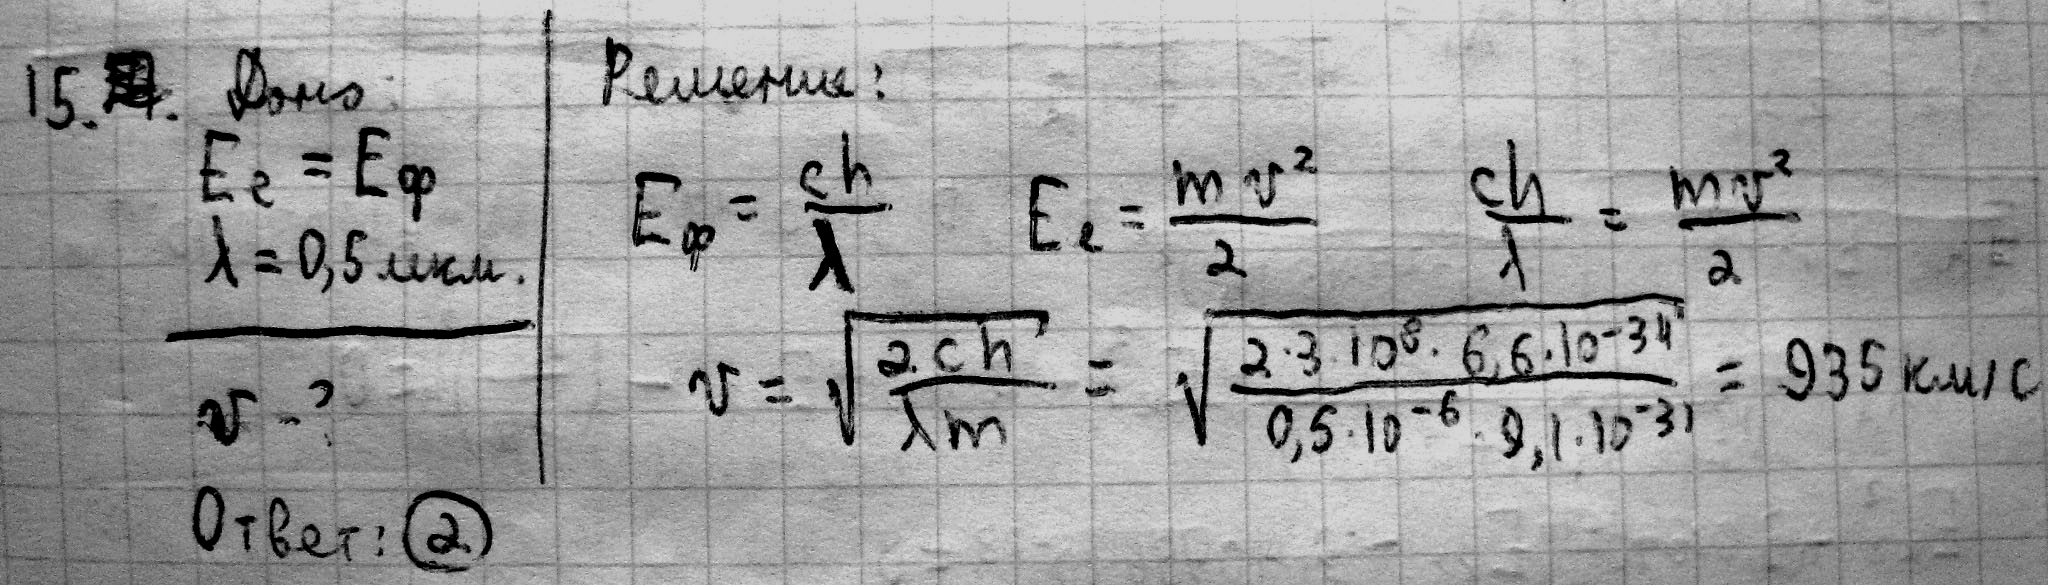 15. Дано:
E_e = E_ф
λ = 0,5 мкм.
v - ?
Ответ: ②
Решение:
E_ф = ch/λ   E_e = mv²/2   ch/λ = mv²/2
v = √(2ch/λm) = √(2·3·10⁸·6,6·10⁻³⁴/0,5·10⁻⁶·9,1·10⁻³¹) = 935 км/с